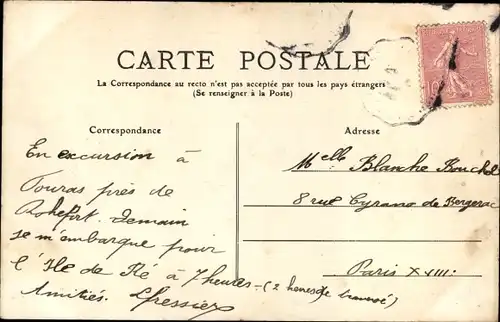 CARTE POSTALE
La Correspondance au recto n'est pas acceptée par tous les pays étrangers
(Se renseigner à la Poste)
Correspondance
Adresse
En excursion à
Fouras près de
Rochefort. Demain
je m'embarque pour
l'Ile de Ré à 7 heures - (2 heures de traversé)
Amitiés.
Melle Blanche
8 rue Cyrano de Bergerac
Paris XVIII:
10